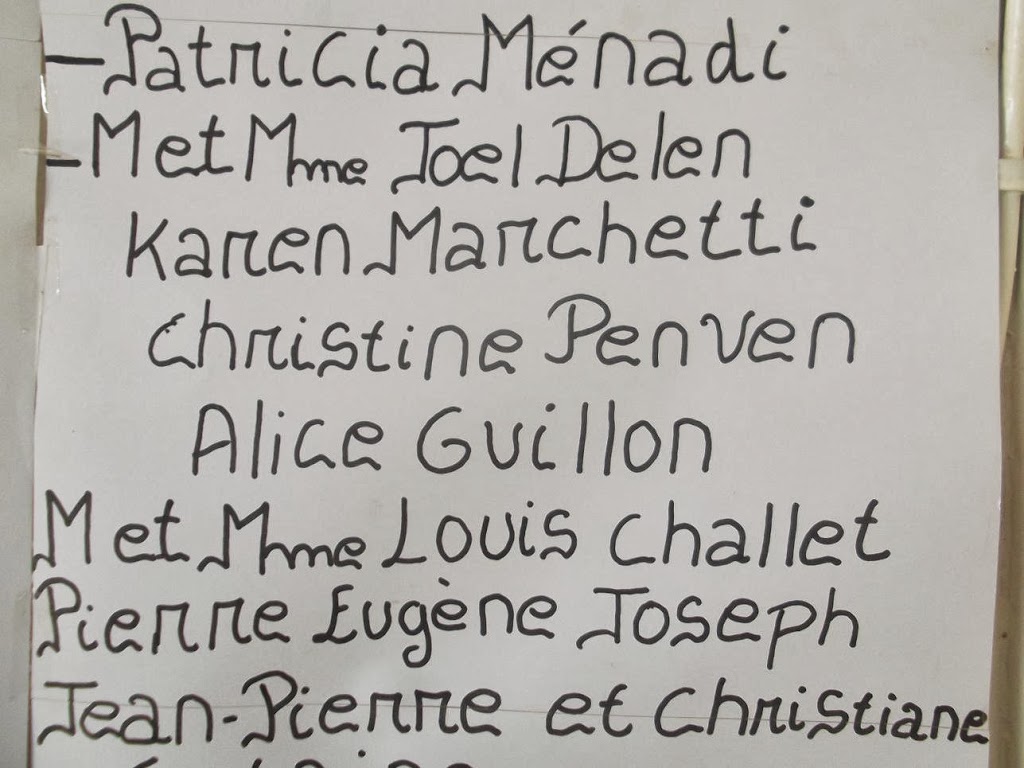 - Patricia Ménadi
- M et Mme Joel Delen
Karen Marchetti
Christine Penven
Alice Guillon
M et Mme Louis Challet
Pierre Eugène Joseph
Jean-Pierre et Christiane